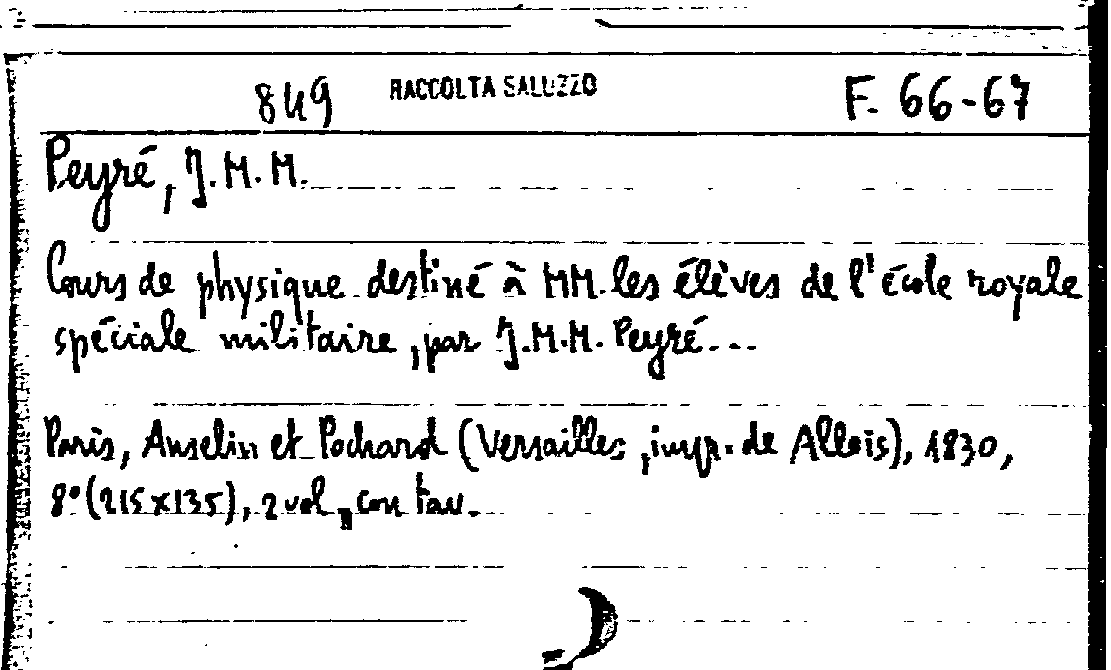 849 RACCOLTA SALUZZO F. 66-67
Peyré, J.M.M.
Cours de physique destiné à MM. les élèves de l'école royale
spéciale militaire, par J.M.M. Peyré...
Paris, Anselin et Pochard (Versailles, impr. de Allois), 1830,
8° (215x135), 2 vol., con tav.